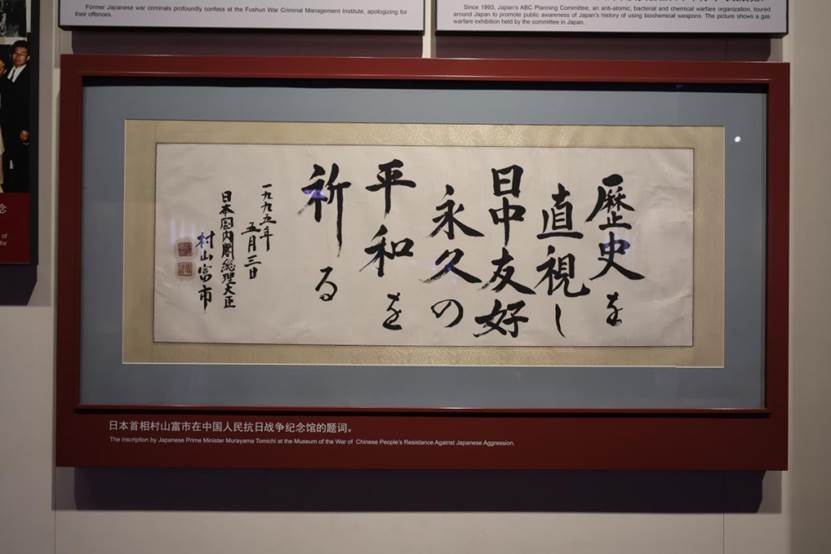 Former Japanese war criminals profoundly confess at the Fushun War Criminal Management Institute, apologizing for
their offences.
Since 1993, Japan's ABC Planning Committee, an anti-atomic, bacterial and chemical warfare organization, toured
around Japan to promote public awareness of Japan's history of using biochemical weapons. The picture shows a gas
warfare exhibition held by the committee in Japan.
歴史を
直視し
日中友好
永久の
平和を
祈る
一九九五年
五月三日
日本国内閣総理大臣
村山富市
日本首相村山富市在中国人民抗日战争纪念馆的题词。
The inscription by Japanese Prime Minister Murayama Tomichi at the Museum of the War of Chinese People's Resistance Against Japanese Aggression.
念
of
for